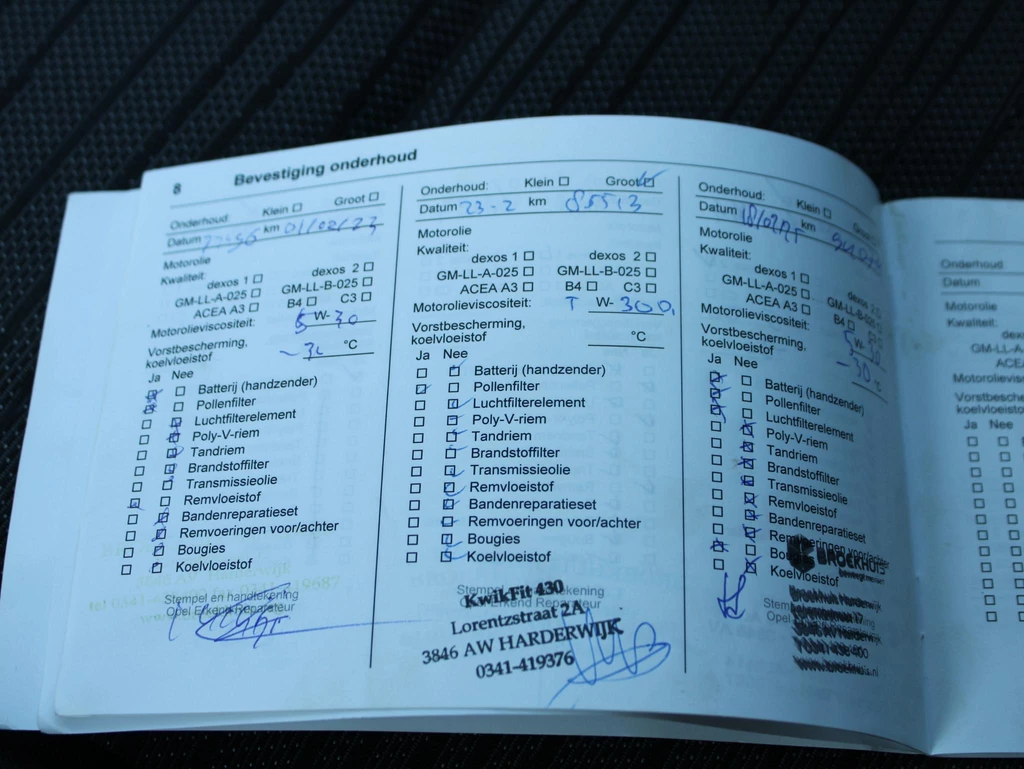 8 Bevestiging onderhoud
Onderhoud: Klein Groot
Datum km 01/02/23
Motorolie
Kwaliteit:
dexos 1 dexos 2
GM-LL-A-025 GM-LL-B-025
ACEA A3 B4 C3
Motorolieviscositeit: 5 W- 30
Vorstbescherming,
koelvloeistof -30 °C
Ja Nee
Batterij (handzender)
Pollenfilter
Luchtfilterelement
Poly-V-riem
Tandriem
Brandstoffilter
Transmissieolie
Remvloeistof
Bandenreparatieset
Remvoeringen voor/achter
Bougies
Koelvloeistof
Stempel en handtekening
Opel Erkend Reparateur
Onderhoud: Klein Groot
Datum 23-2 km
Motorolie
Kwaliteit:
dexos 1 dexos 2
GM-LL-A-025 GM-LL-B-025
ACEA A3 B4 C3
Motorolieviscositeit: W- 300
Vorstbescherming,
koelvloeistof °C
Ja Nee
Batterij (handzender)
Pollenfilter
Luchtfilterelement
Poly-V-riem
Tandriem
Brandstoffilter
Transmissieolie
Remvloeistof
Bandenreparatieset
Remvoeringen voor/achter
Bougies
Koelvloeistof
Stempel en handtekening
Opel Erkend Reparateur
KwikFit 430
Lorentzstraat 2A
3846 AW HARDERWIJK
0341-419376
Onderhoud: Klein
Datum km
Motorolie
Kwaliteit:
dexos 1 dexos 2
GM-LL-A-025 GM-LL-B-025
ACEA A3 B4
Motorolieviscositeit: 5 W- 30
Vorstbescherming,
koelvloeistof -30 °C
Ja Nee
Batterij (handzender)
Pollenfilter
Luchtfilterelement
Poly-V-riem
Tandriem
Brandstoffilter
Transmissieolie
Remvloeistof
Bandenreparatieset
Remvoeringen voor/achter
Koelvloeistof
BROEKHUIS
Broekhuis Harderwijk
Onderhoud
Datum
Motorolie
Kwaliteit:
GM-LL-A
ACEA
Motorolieviscosi
Vorstbesche
koelvloeistof
Ja Nee